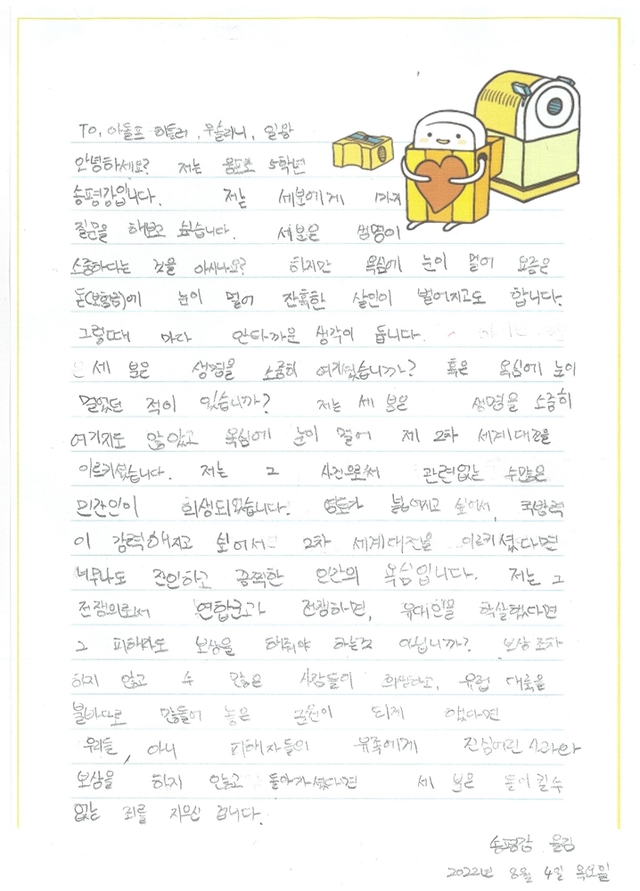 To. 아돌프 히틀러, 무솔리니, 일왕
안녕하세요? 저는 5학년
송평강입니다. 저는 세분에게 1가지
질문을 해보고 싶습니다. 세분은 생명이
소중하다는 것을 아시나요? 하지만 욕심에 눈이 멀어 요즘은
돈(보험금)에 눈이 멀어 잔혹한 살인이 벌어지고도 합니다.
그럴때 마다 안타까운 생각이 듭니다.
세 분은 생명을 소중히 여기셨습니까? 혹은 욕심에 눈이
멀었던 적이 있습니까? 저는 세 분은 생명을 소중히
여기지도 않았고 욕심에 눈이 멀어 제 2차 세계대전을
이르키셨습니다. 저는 그 사건으로써 관련없는 수많은
민간인이 희생되었습니다. 영토가 넓어지고 싶어서, 국방력
이 강력해지고 싶어서 2차 세계대전을 이르키셨다면
너무나도 잔인하고 끔찍한 인간의 욕심입니다. 저는 그
전쟁의로서 연합군과 전쟁하면, 유대인을 학살했다면
그 피해라도 보상을 해줘야 하는것 아닙니까? 보상조차
하지 않고 수 많은 사람들이 희생하고, 유럽 대륙을
불바다로 만들어 놓은 근원이 되게 했다면
우리들, 아니 피해자들의 유족에게 진심어린 사과와
보상을 하지 않고 돌아가셨다면 세 분은 돌이킬수
없는 죄를 지으신 겁니다.
송평강 올림
2022년 8월 4일 목요일